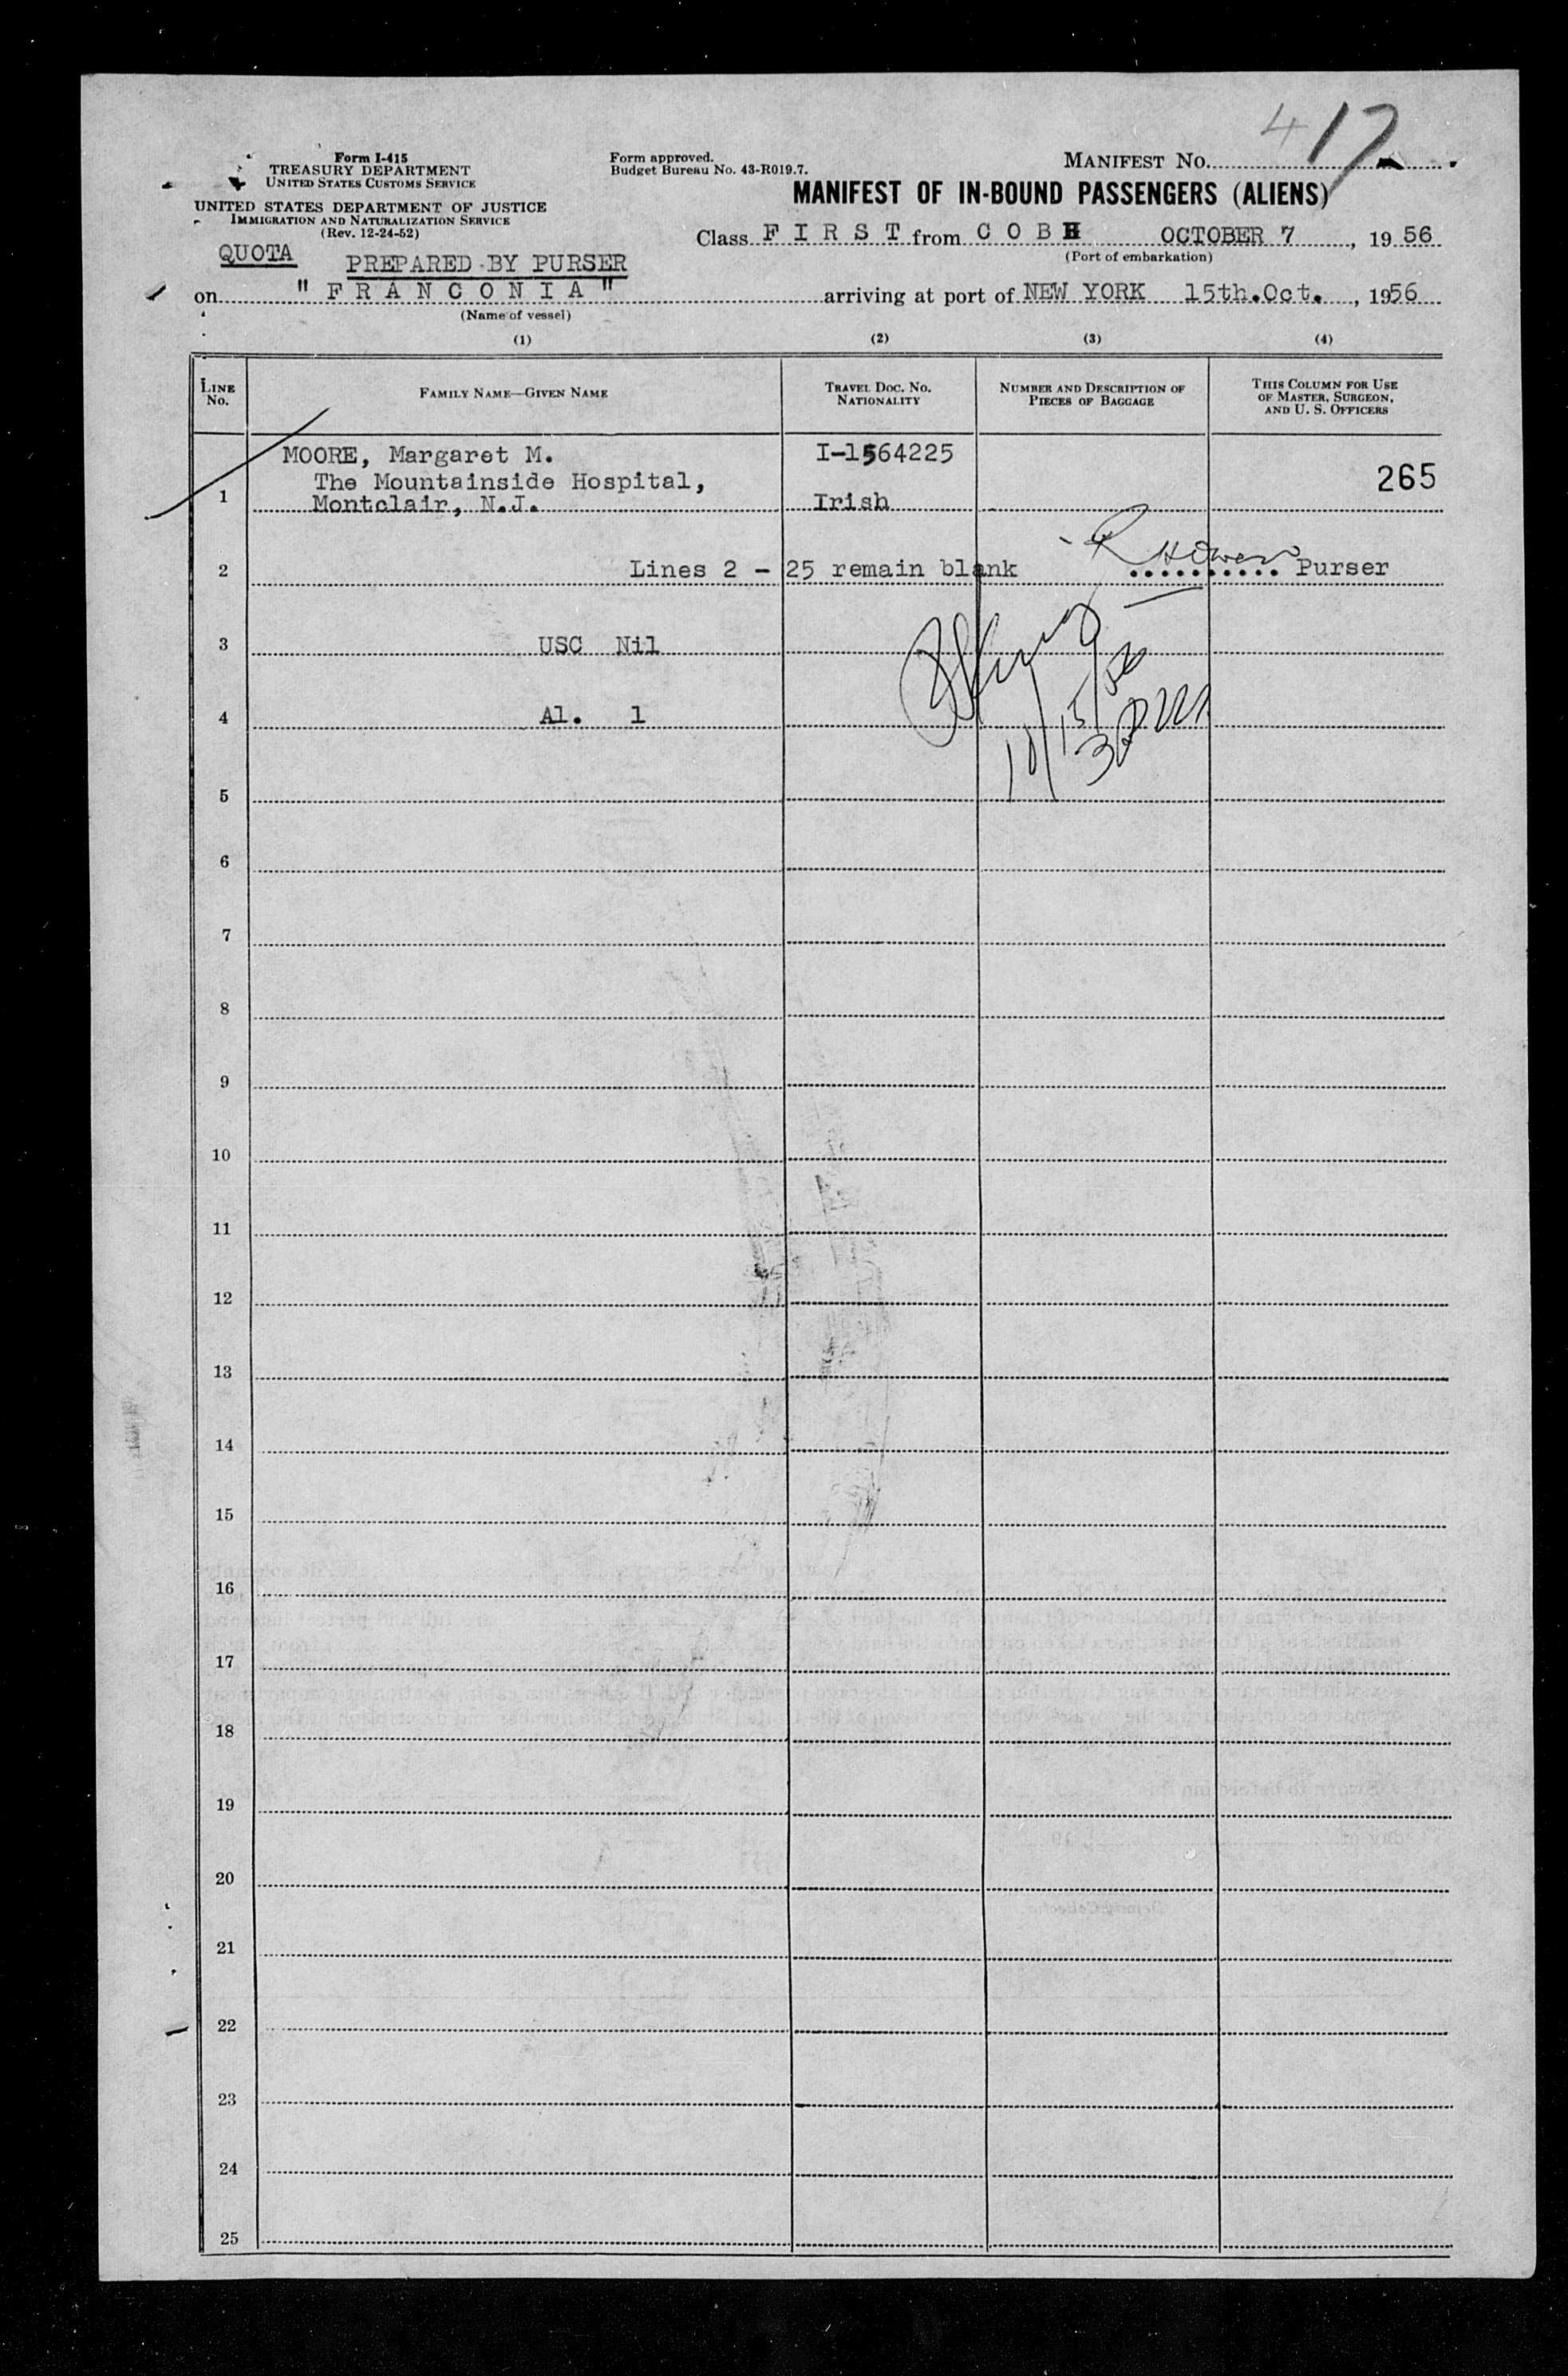 417
Form I-415
TREASURY DEPARTMENT
UNITED STATES CUSTOMS SERVICE
UNITED STATES DEPARTMENT OF JUSTICE
IMMIGRATION AND NATURALIZATION SERVICE
(Rev. 12-24-52)
Form approved.
Budget Bureau No. 43-R019.7.
MANIFEST NO.
MANIFEST OF IN-BOUND PASSENGERS (ALIENS)
Class FIRST from COBH OCTOBER 7, 1956
(Port of embarkation)
QUOTA
PREPARED BY PURSER
on "FRANCONIA" arriving at port of NEW YORK 15th.Oct., 1956
(Name of vessel)
(1) (2) (3) (4)
LINE NO.
FAMILY NAME—GIVEN NAME
TRAVEL DOC. NO. NATIONALITY
NUMBER AND DESCRIPTION OF PIECES OF BAGGAGE
THIS COLUMN FOR USE OF MASTER, SURGEON, AND U. S. OFFICERS
MOORE, Margaret M. I-1564225
The Mountainside Hospital, 265
1 Montclair, N.J. Irish
2 Lines 2 - 25 remain blank .......... Purser
3 USC Nil
4 Al. 1
10/15/56
5
6
7
8
9
10
11
12
13
14
15
16
17
18
19
20
21
22
23
24
25